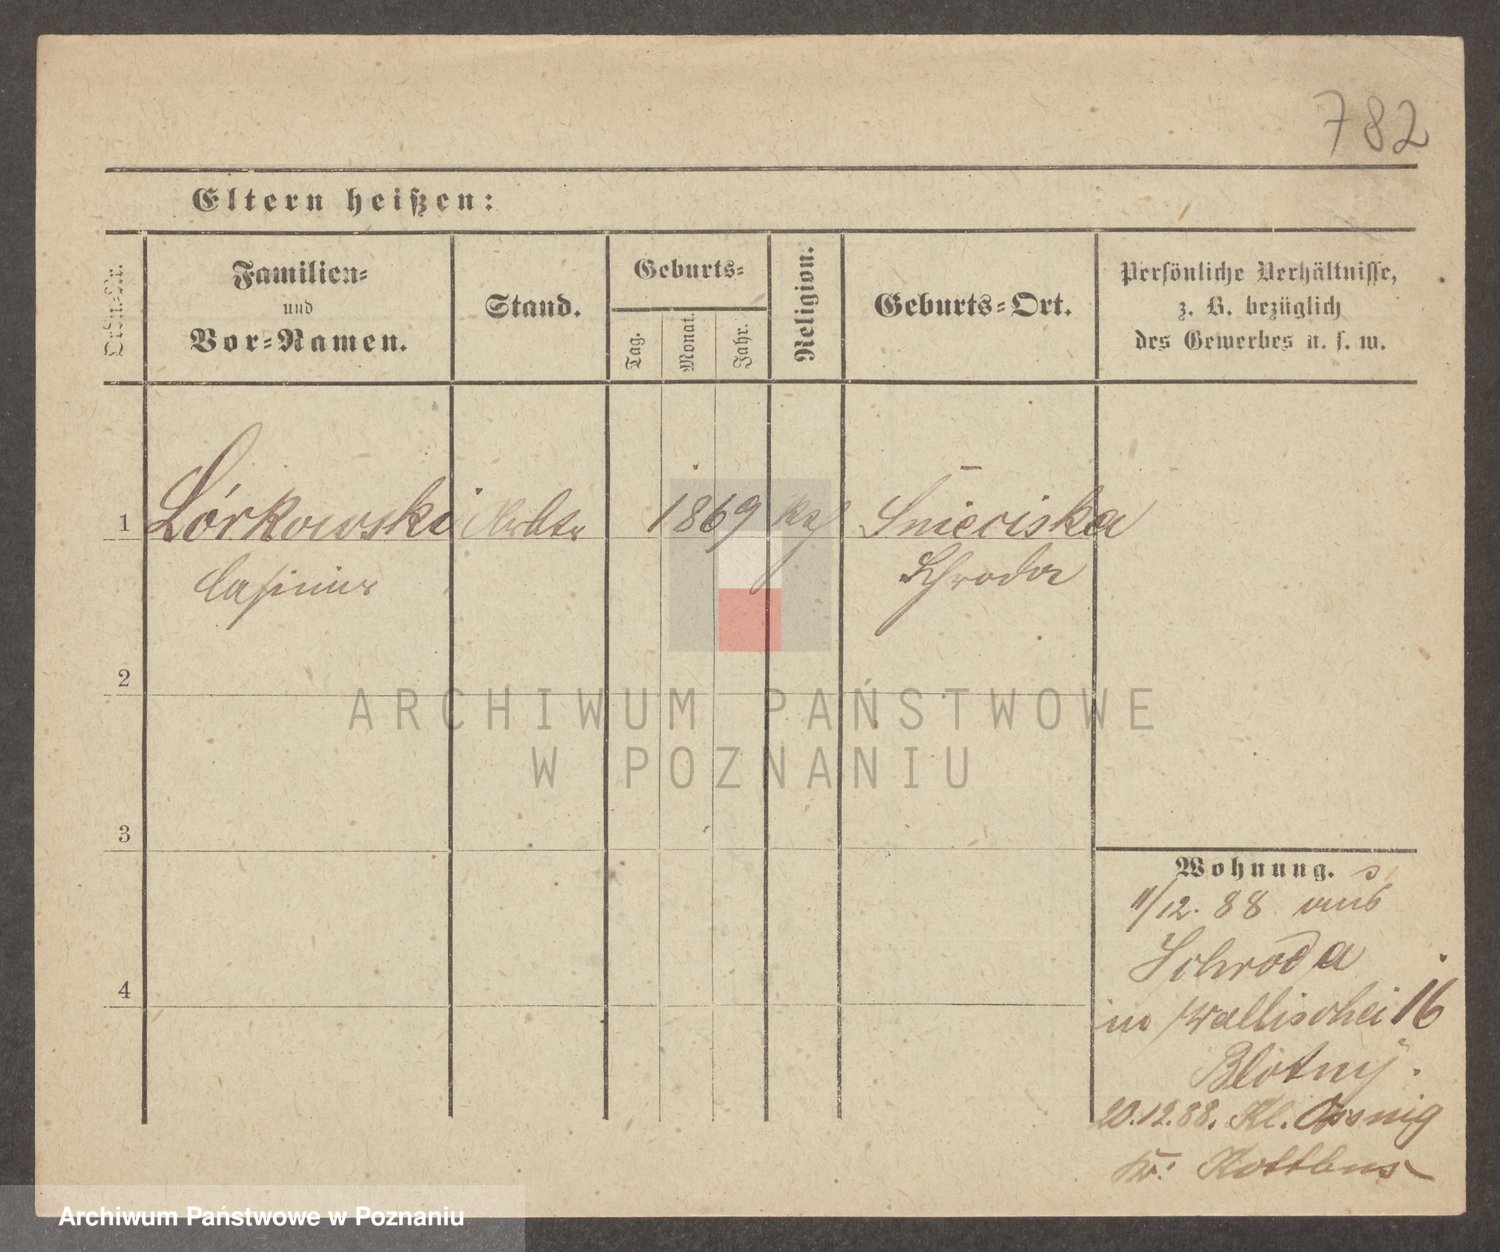 782
Eltern heißen:
Ordn.-Nr.
Familien-
und
Vor-Namen.
Stand.
Geburts-
Tag.
Monat.
Jahr.
Religion.
Geburts-Ort.
Persönliche Verhältnisse,
z. B. bezüglich
des Gewerbes u. s. w.
1 Lórkowski 1869 Snieciska
Casimir Schroda
2
ARCHIWUM PAŃSTWOWE
W POZNANIU
3
4
Wohnung.
11/12. 88 aus
Schroda
in Wallischei 16
Blotny.
20.12.88. Kl. Ossnig
Kr: Kottbus
Archiwum Państwowe w Poznaniu